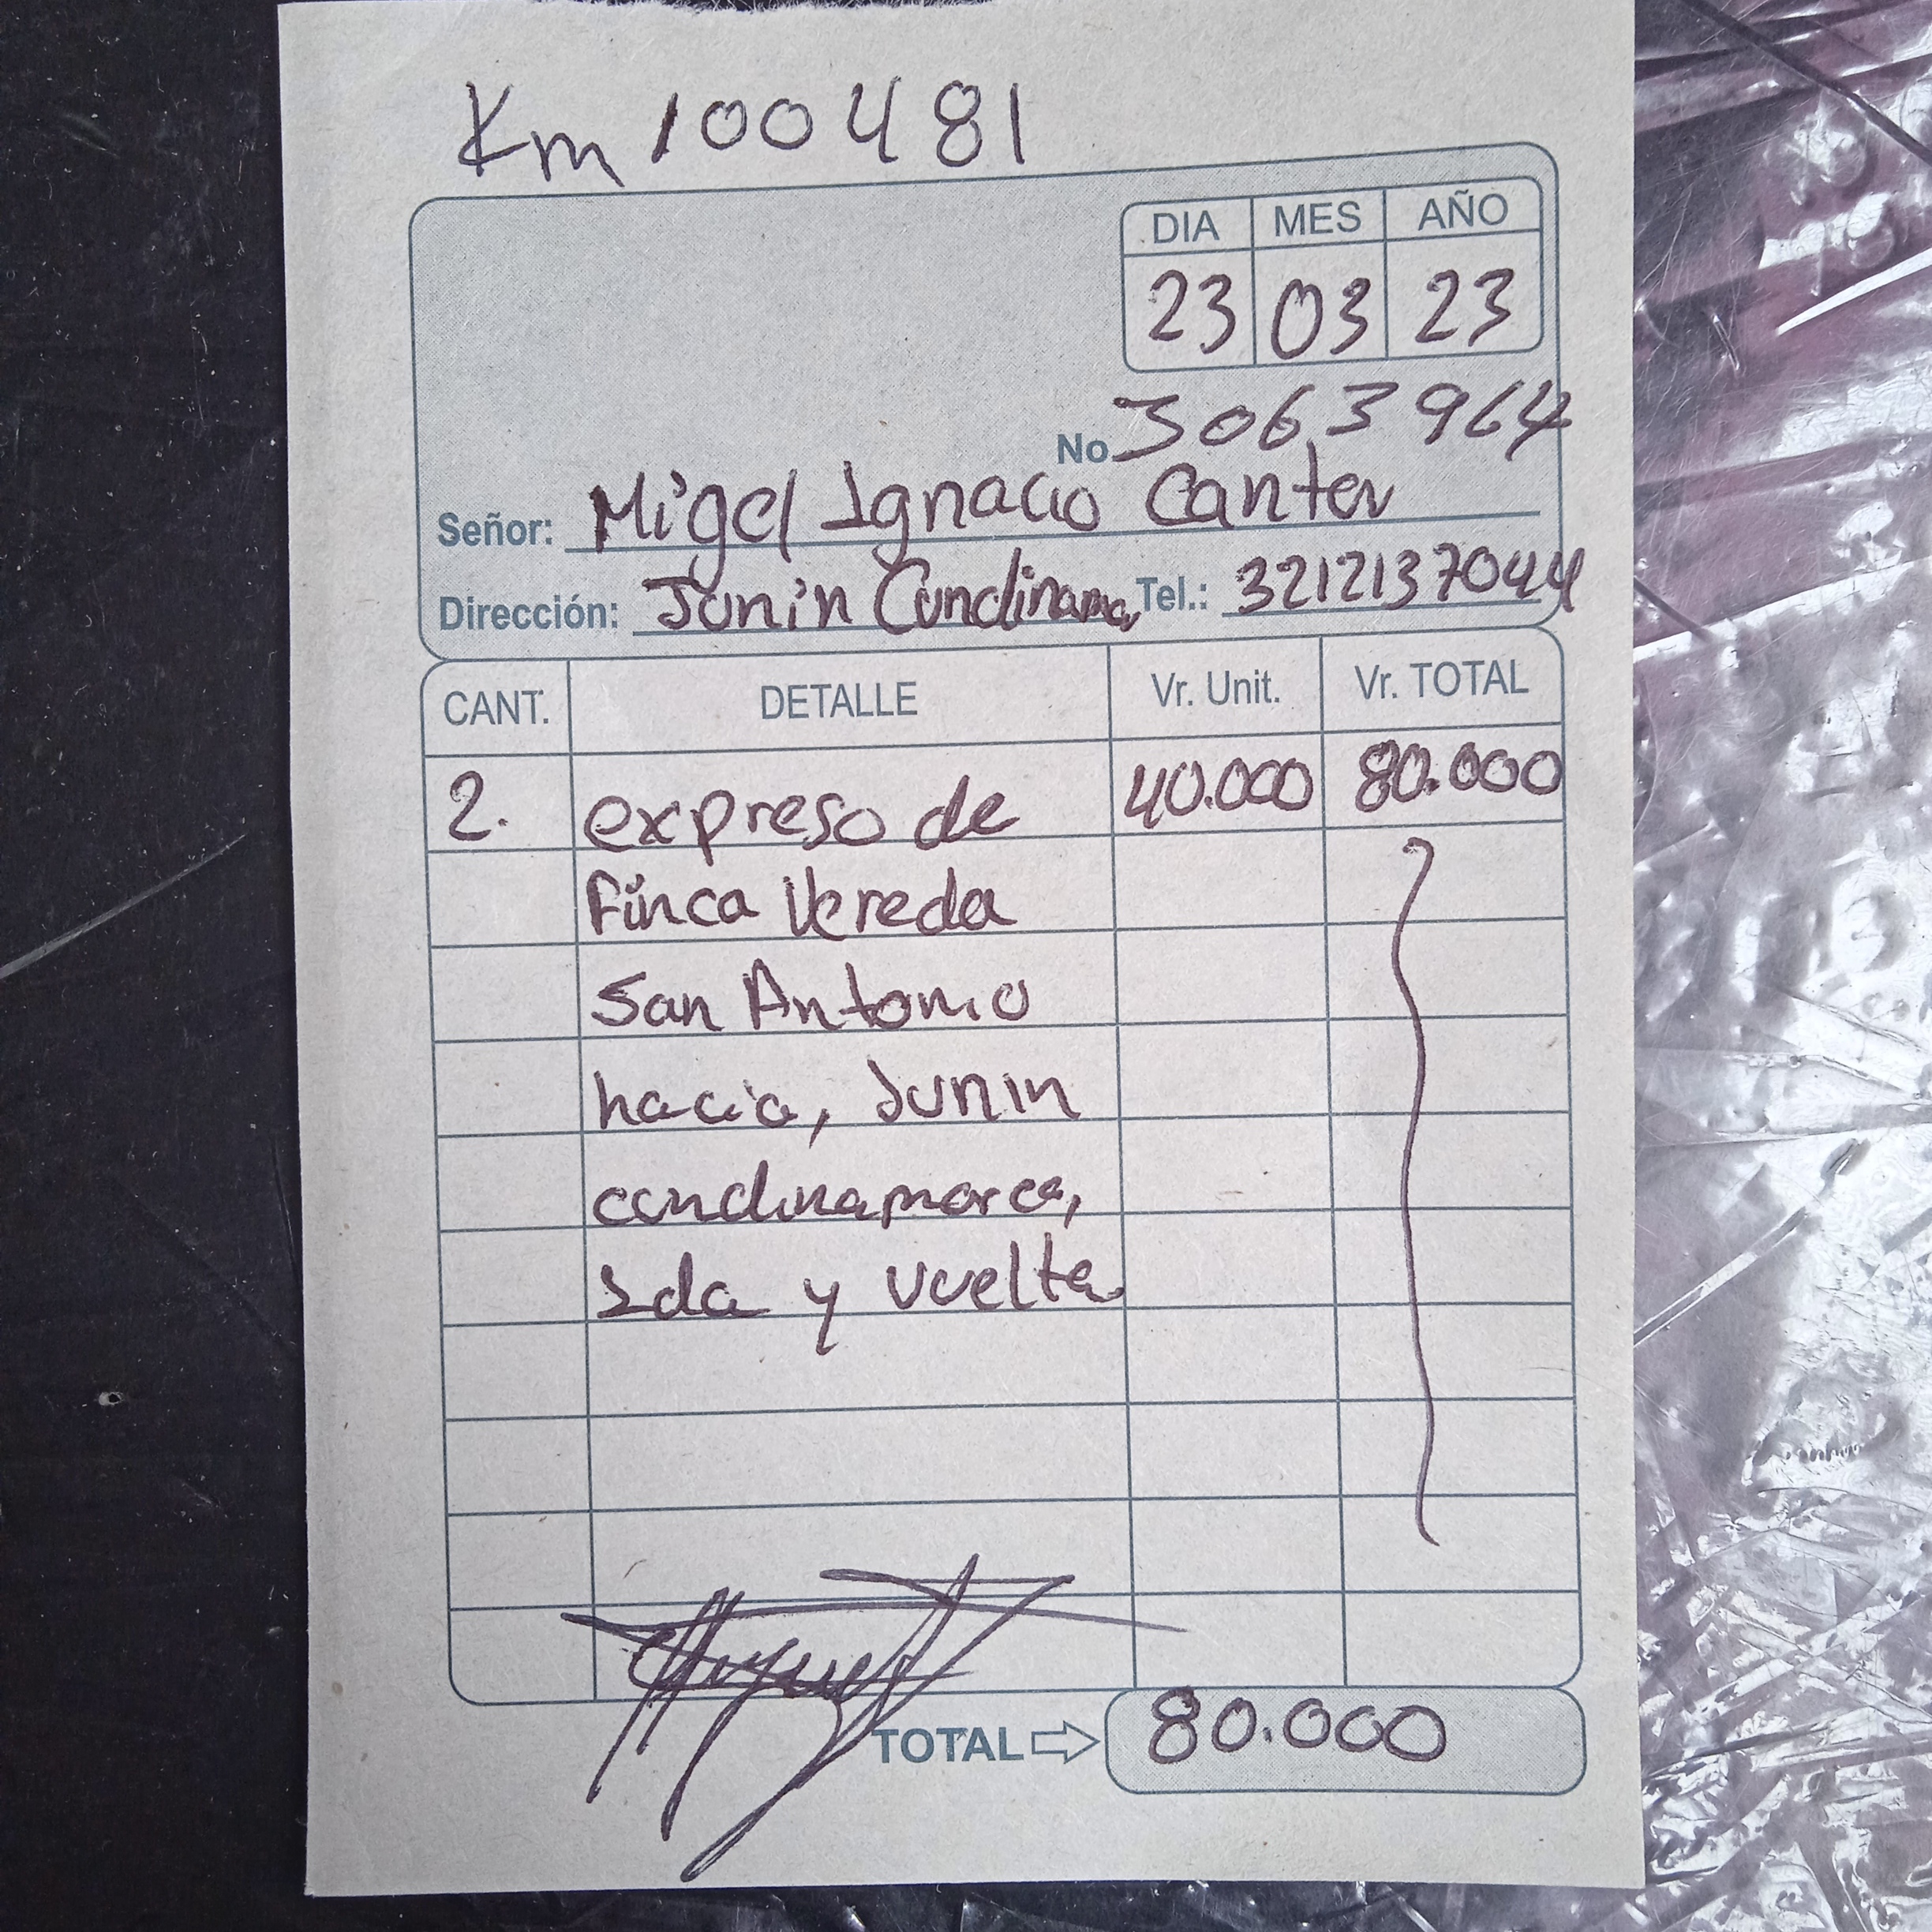 Km 100481
DIA MES AÑO
23 03 23
No 3063964
Señor: Migel Ignacio Canter
Dirección: Junin Cundinama Tel.: 3212137044
CANT. DETALLE Vr. Unit. Vr. TOTAL
2. expreso de 40.000 80.000
finca Vereda
San Antonio
hacia, Junin
cundinamarca,
Ida y vuelta
TOTAL 80.000